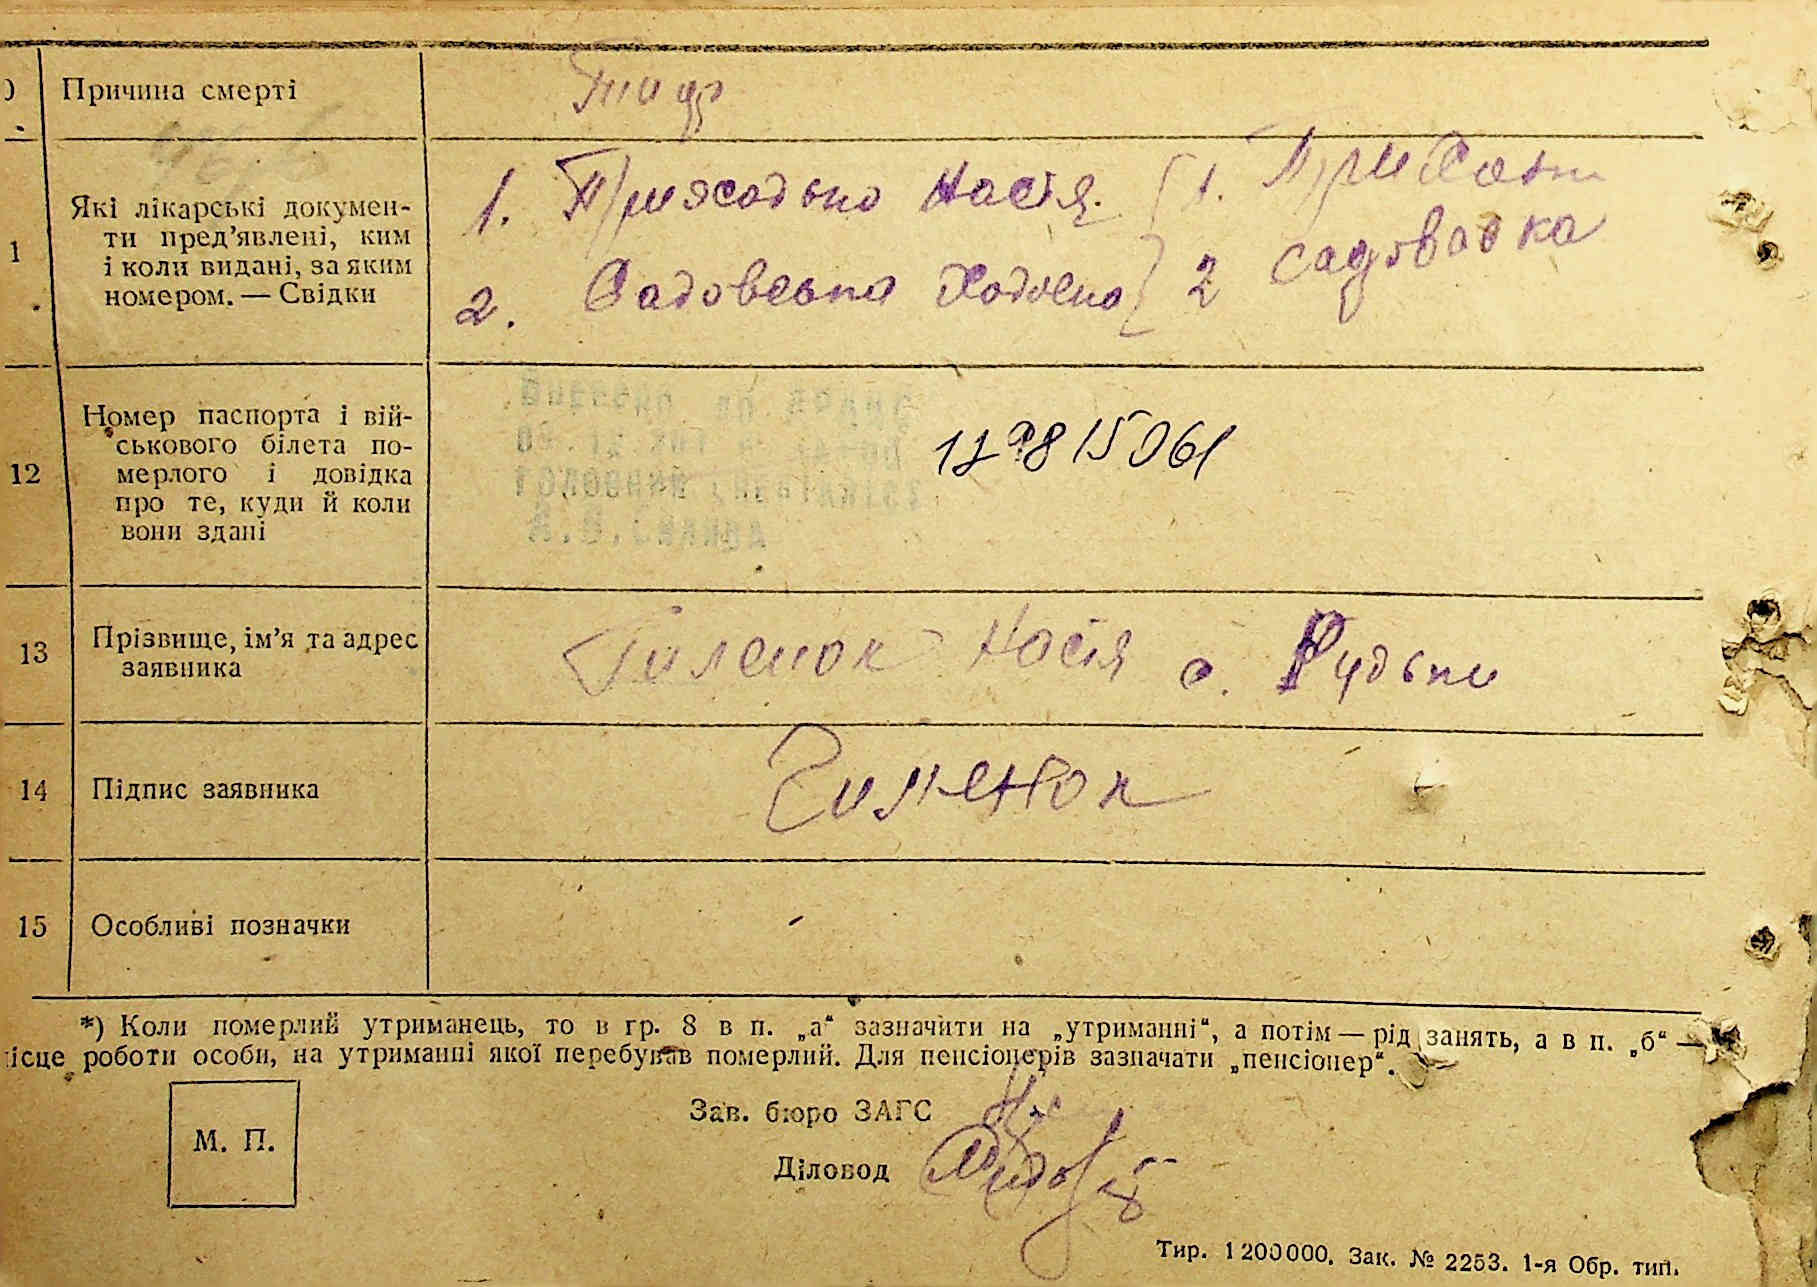 Причина смерті
Тиф
1
Які лікарські докумен-
ти пред’явлені, ким
і коли видані, за яким
номером. — Свідки
1. Приходько Настя. 1.
2. Садовська 2 Садовська
12
Номер паспорта і вій-
ськового білета по-
мерлого і довідка
про те, куди й коли
вони здані
13
Прізвище, ім’я та адрес
заявника
Гиленок Настя с. Рудьки
14
Підпис заявника
15
Особливі позначки
*) Коли померлий утриманець, то в гр. 8 в п. „а“ зазначити на „утриманні“, а потім — рід занять, а в п. „б“ —
ісце роботи особи, на утриманні якої перебував померлий. Для пенсіонерів зазначати „пенсіонер“.
М. П.
Зав. бюро ЗАГС
Діловод
Тир. 1200000. Зак. № 2253. 1-я Обр. тип.